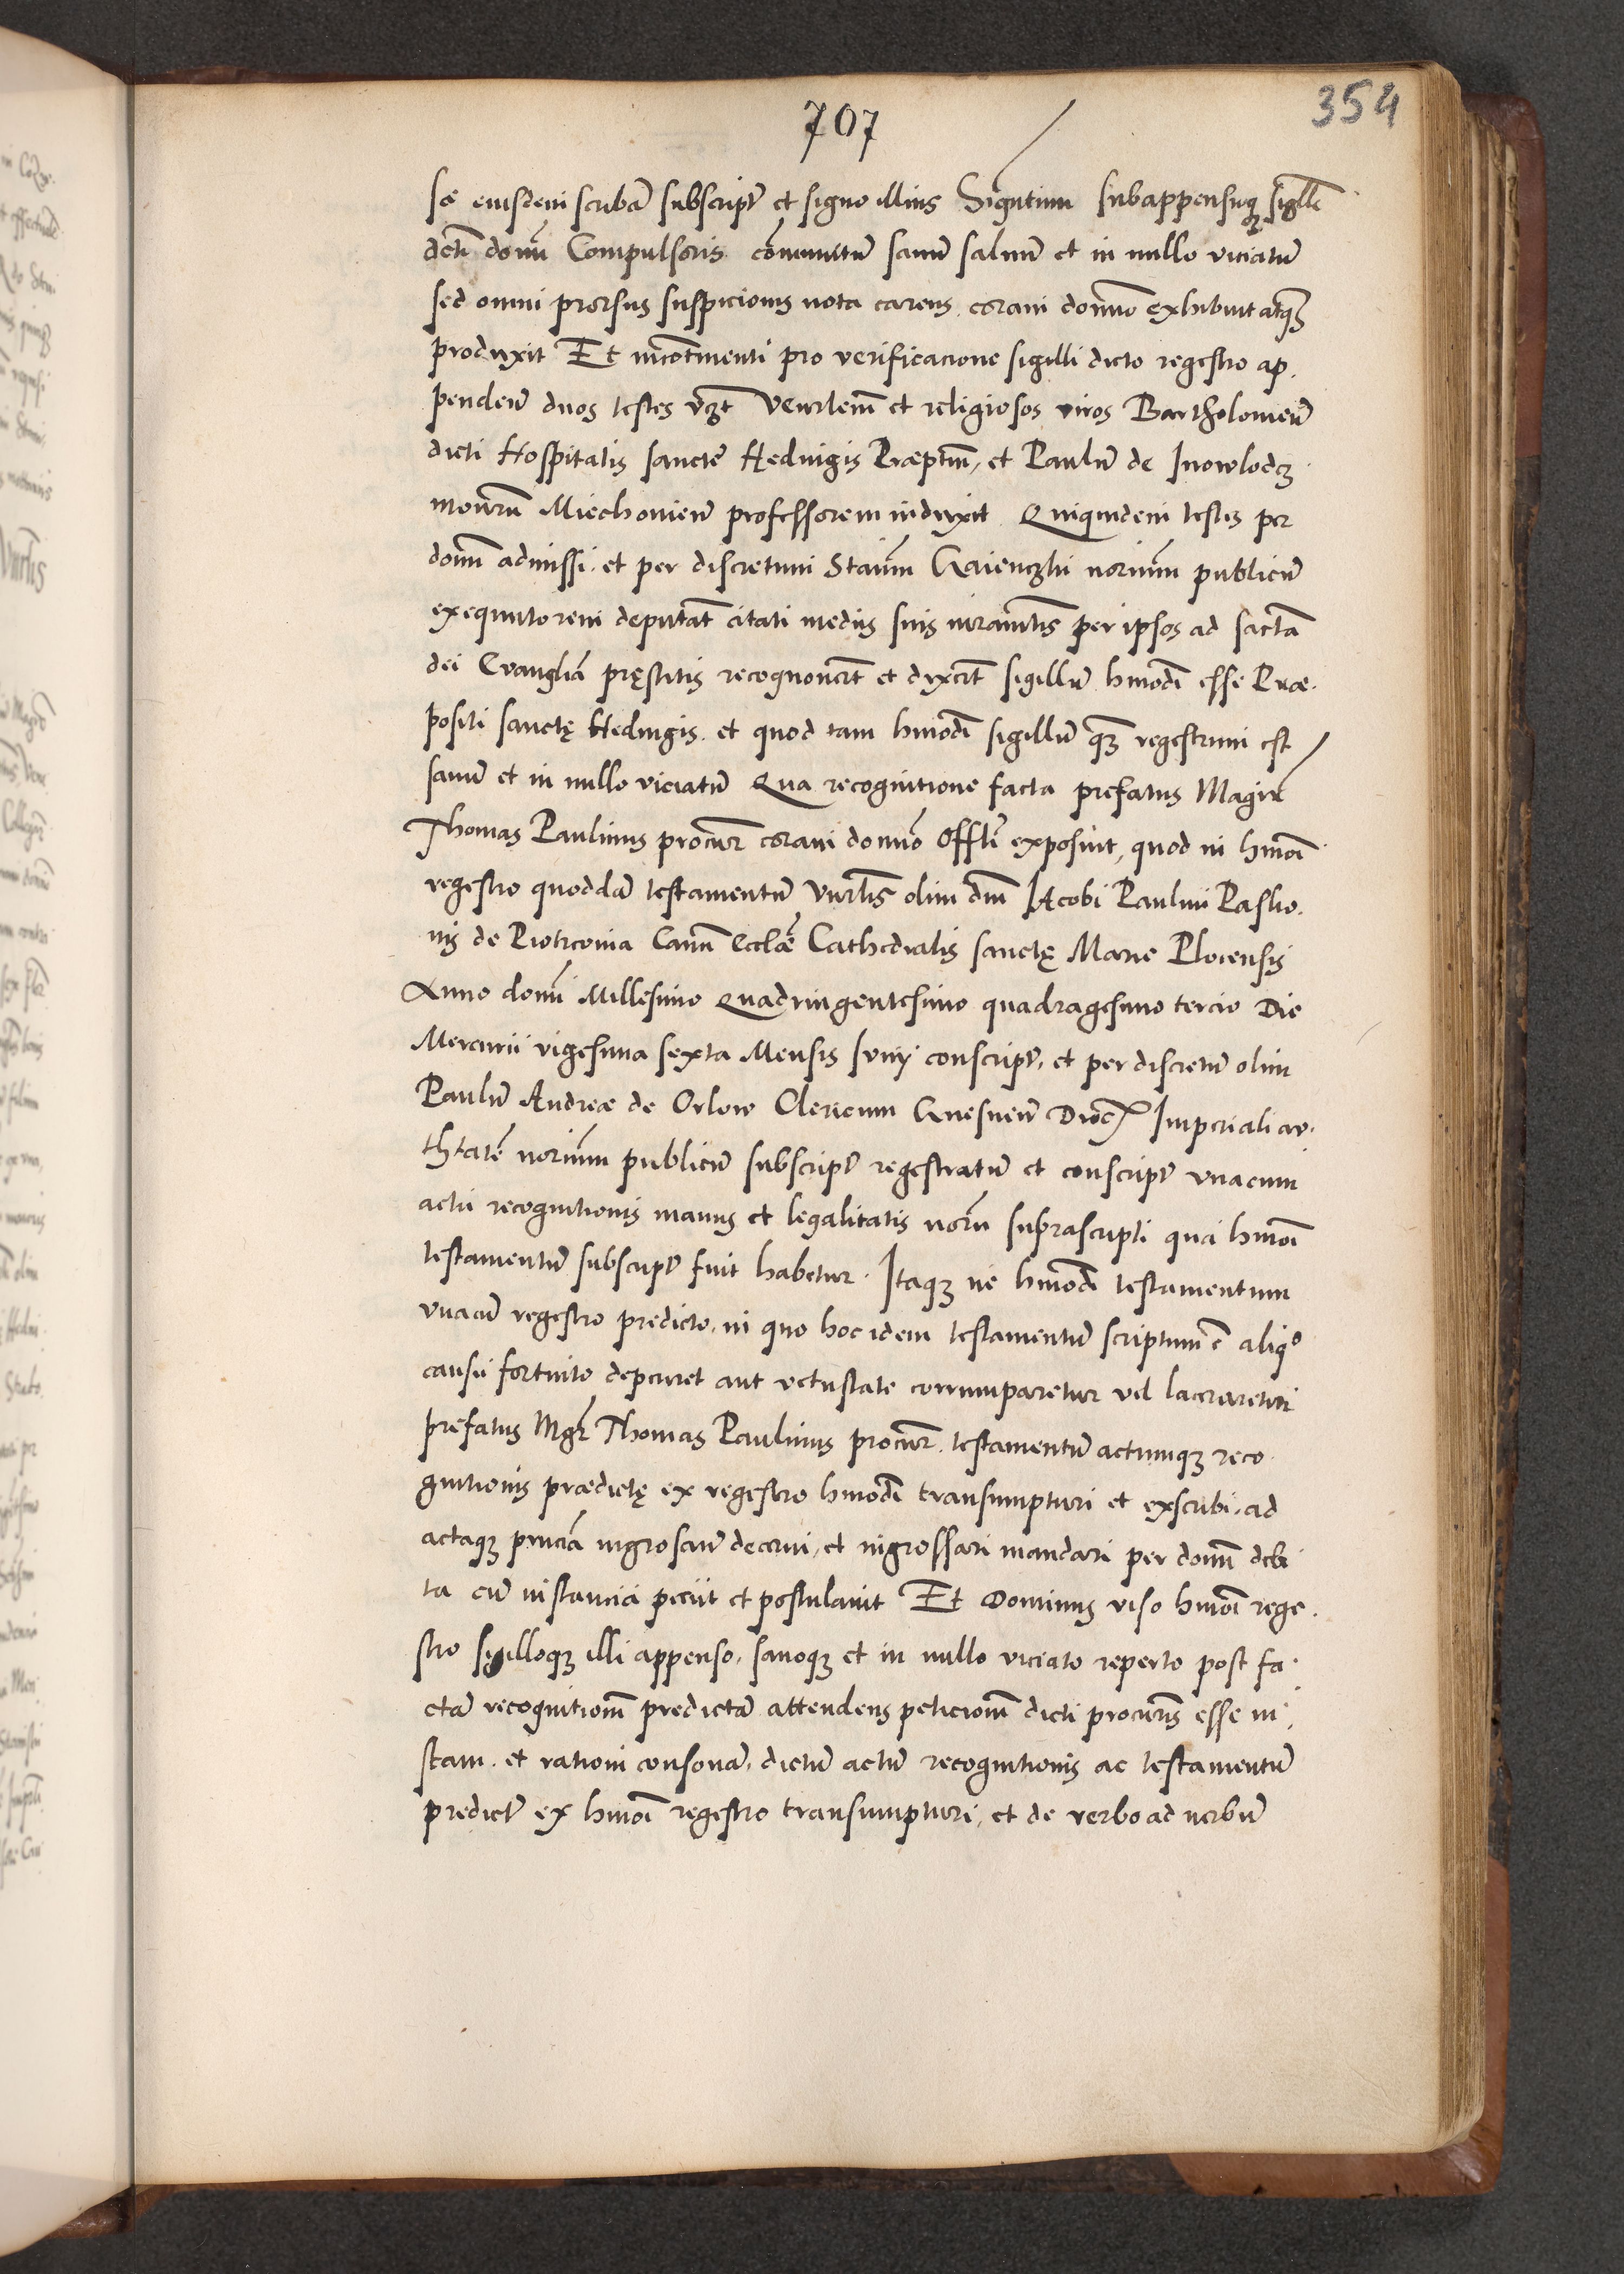 707
354
se eiusdem scribā subscript̄ et signo illius Sigñtium subappensuqꝫ sigill̄
dcti domī Compulsoris com̄unitū sanū saluū et in nullo viciatū
sed omni prorsus suspicionis nota carens coram domīo exhibuit atqꝫ
produxit Et incontinenti pro verificacione sigilli dicto regestro ap
penden̄ duos testes vꝫt Venrlem̄ et religiosos viros Bartholomeū
dicti Hospitalis sancte Heduigis Præptm̄, et Paulū de Inowlodcꝫ
monrm̄ Miechouien̄ professorem induxit Quiquidem testes per
domī admissi et per discretum Stanm̄ publicū
exequutorem deputat̄ citati medijs suis iuramtis per ipsos ad sacta
dei Evanglia pręstitis recognouert̄ et dixert̄ sigillū hmodi esse Præ
positi sanctę Heduigis et quod tam hmodi sigillū qm̄ regestrum est
sanū et in nullo viciatū Qua recognitione facta prefatus Magr̄
Thomas Paulinus procur̄ coram domīo Offlī exposuit, quod in hmoi
regestro quoddā testamentū Vnrlis olim dm̄ Iacobi Paulini Passio
nis de Piotrcouia Can̄ Ecclæ Cathedralis sanctę Marie Plocensis
Anno domī Millesimo Quadringentesimo quadragesimo tercio Die
Mercurii vigesima sexta Mensis Iunij conscript̄, et per discretū olim
Paulū Andreæ de Orlow Clericum Gnesnen̄ Dioc̄ Imperiali au
thtatē norium̄ publicū subscript̄ regestratū et conscript̄ vnacum
actu recognitionis manus et legalitatis norij suprascripti qui hmoi
testamentū subscript̄ fuit habetur. Itaqꝫ ne hmodi testamentum
vnacū regestro predicto, in quo hoc idem testamentū scriptum ē aliqo
casu fortuito deperiret aut vetustate corrumperetur vel laceraretur
prefatus Mgr̄ Thomas Paulinus procur̄ testamentū actumqꝫ reco
gnitionis prædictę ex regestro hmodi transumpturi et exscribi, ad
actaqꝫ ingrosan̄ decerni, et ingrossari mandari per domī debi
ta cū instancia peciit et postulauit Et Dominus viso hmoi rege
stro sigilloqꝫ illi appenso, sanoqꝫ et in nullo viciato reperto post fa
ctā recognitionm̄ predictā attendens peticionm̄ dicti procuris esse iu
stam et rationi consonā, dictū actū recognitionis ac testamentū
predict̄ ex hmoi regestro transumpturi, et de verbo ad verbū